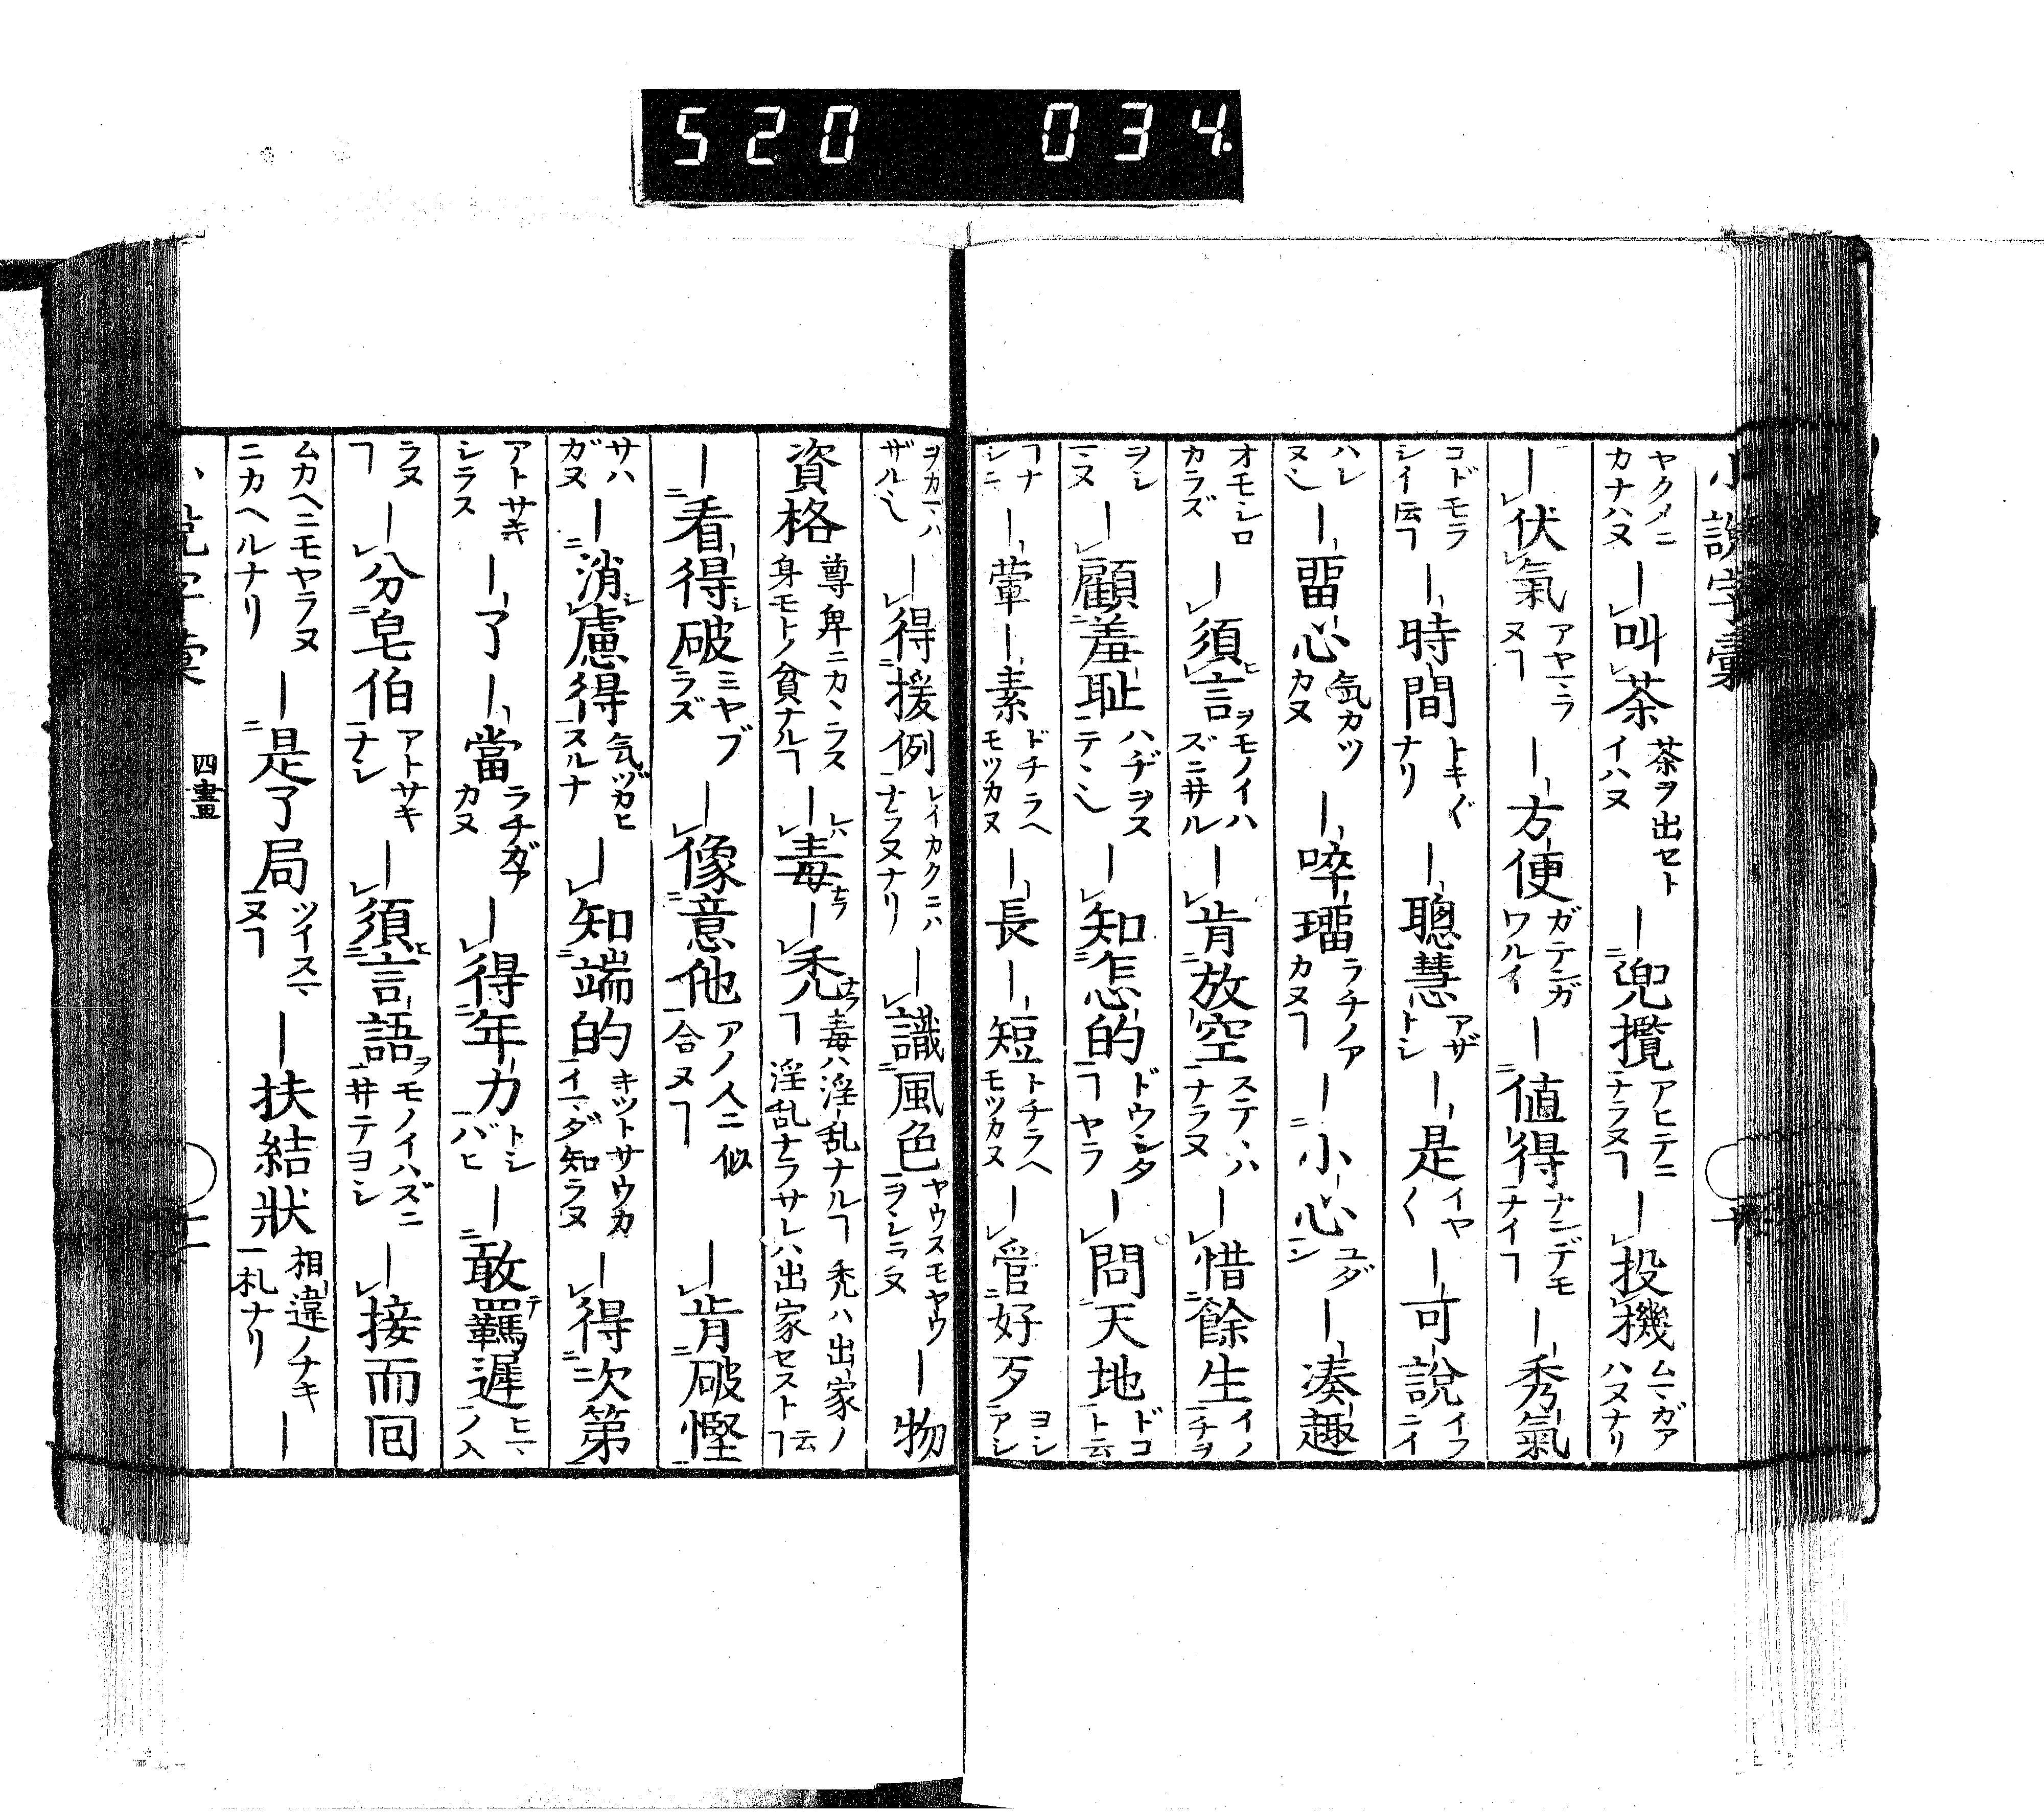 520 034.
小說字彙
ヤクメニカナハヌ ー叫茶 茶ヲ出セトイハヌ ー兜攬 アヒテニナラヌヿ ー投機 ムマガアハヌナリ
ー伏氣 アヤマラヌヿ ー方便 ガテンガワルイ ー値得 ナンデモナイヿ ー秀氣
コドモラシイ云ヿ ー時間 トキ〱ナリ ー聰慧 アザトシ ー是 イヤ〱 ー可說 イフニイ
ハレヌ乄 ー畱心 気カツカヌ ー啐𤨪 ラチノアカヌヿ ー小心 ユダン ー凑趣
オモシロカラズ ー須言 ヲモノイハズニサル ー肯放空 ステヽハナラヌ ー惜餘生 イノチヲ
ヲシマヌ ー顧羞耻 ハヂヲステヽ乄 ー知怎的 ドウシタヿヤラ ー問天地 ドコト云
ヿナシニ ー葷ー素 ドチラヘモツカヌ ー長ー短 トチラヘモツカヌ ー管好歹 ヨシアシ
ヲカマハザル乄 ー得援例 レイカクニハナラヌナリ ー識風色 ヤウスモヤウヲシラヌ ー物
資格 尊卑ニカヽラス身モトノ貧ナルヿ ー毒ー禿 毒ハ淫乱ナルヿ禿ハ出家ノヿ淫乱ナラサレハ出家セスト云ヿ
ー看得破 ミヤブラズ ー像意他 アノ人ニ似合ヌヿ ー肯破慳
サハガヌ ー消慮得 気ヅカヒスルナ ー知端的 キツトサウカイマダ知ラヌ ー得次第
アトサキシラス ー了ー當 ラチガアカヌ ー得年力 トシバヒ ー敢羈遲 ヒマノ入
ラヌヿ ー分皂伯 アトサキナシ ー須言語 ヲモノイハズニ井テヨシ ー接而回
ムカヘニモヤラヌニカヘルナリ ー是了局 ツイスマヌヿ ー扶結狀 相違ノナキ一札ナリ ー
四畫